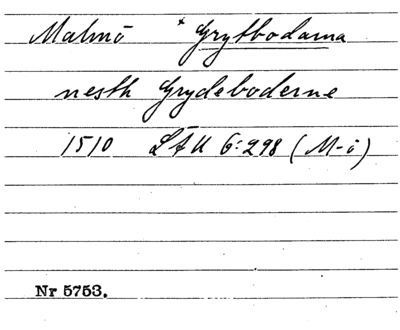 Malmö * Grytbodarna
nesth Grydeboderne
1510 LÄU 6:298 (M-ö)
Nr 5753.